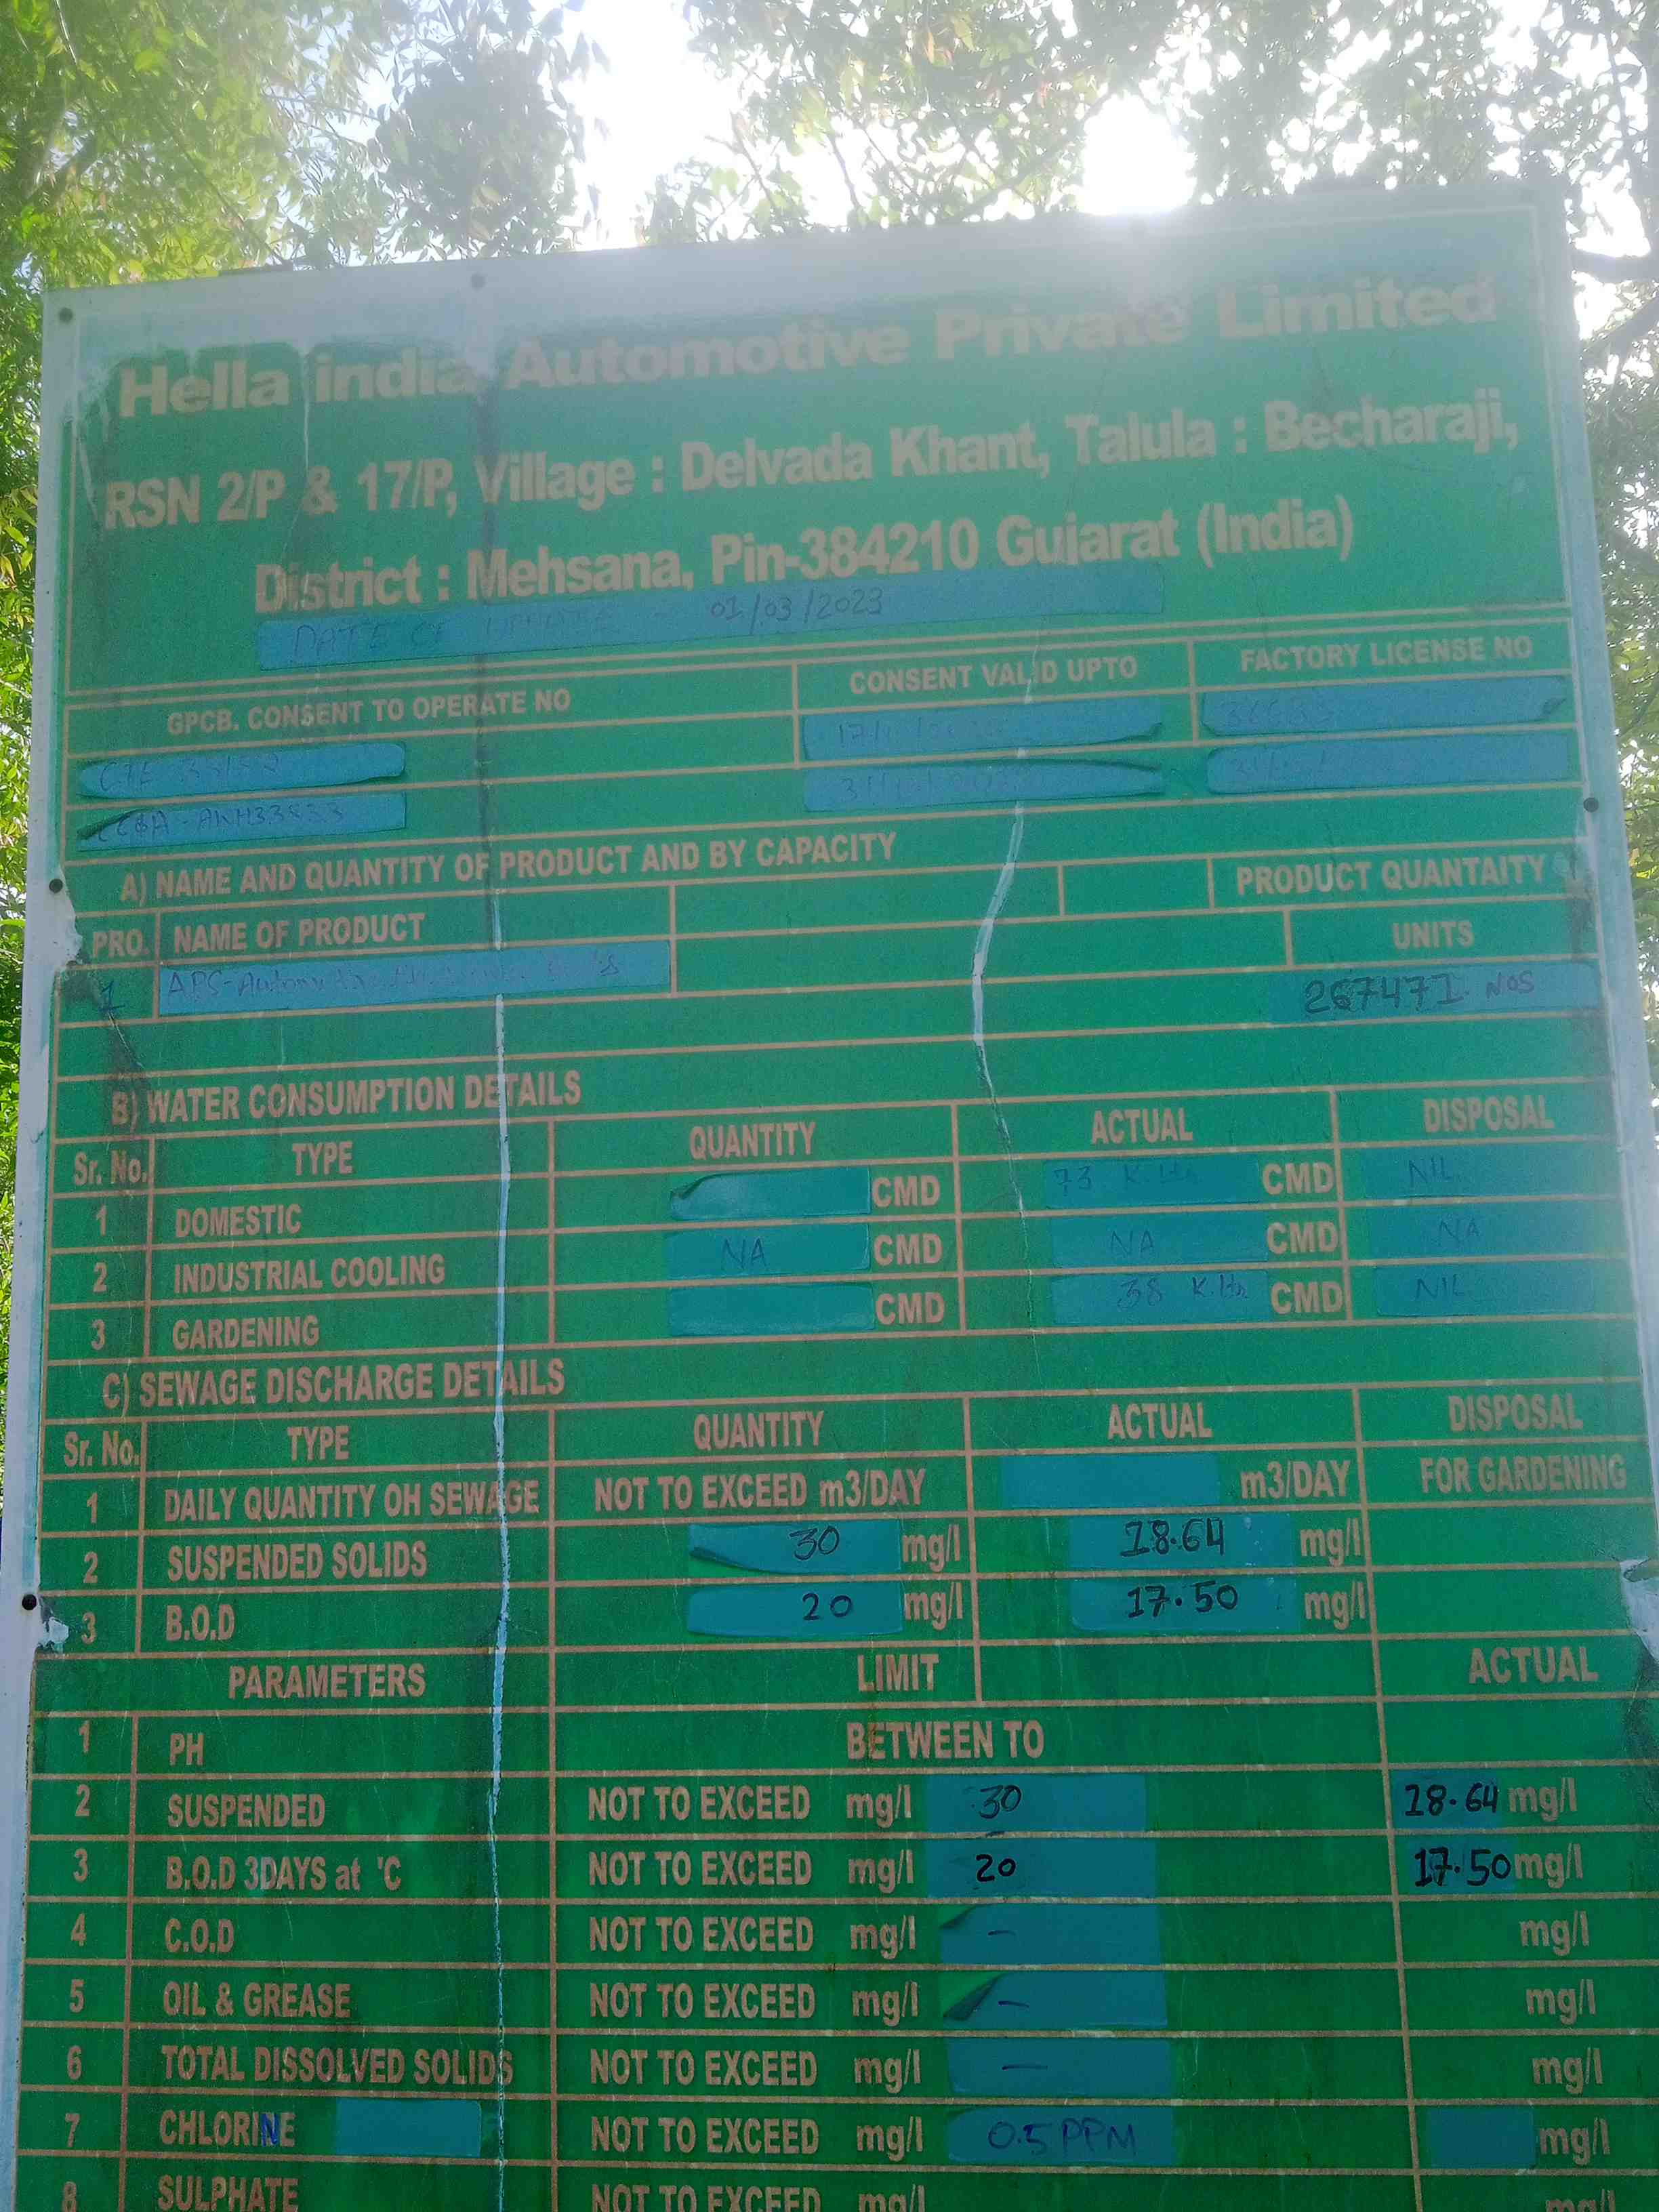 Hella india Automotive Private Limited
RSN 2/P & 17/P, Village : Delvada Khant, Talula : Becharaji,
District : Mehsana, Pin-384210 Gujarat (India)
DATE OF UPDATE - 01/03/2023
GPCB. CONSENT TO OPERATE NO CONSENT VALID UPTO FACTORY LICENSE NO
A) NAME AND QUANTITY OF PRODUCT AND BY CAPACITY
PRODUCT QUANTAITY
PRO. NAME OF PRODUCT UNITS
1 267471 NOS
B) WATER CONSUMPTION DETAILS
Sr. No. TYPE QUANTITY ACTUAL DISPOSAL
1 DOMESTIC CMD 73 CMD NIL
2 INDUSTRIAL COOLING NA CMD NA CMD NA
3 GARDENING CMD 38 CMD NIL
C) SEWAGE DISCHARGE DETAILS
Sr. No. TYPE QUANTITY ACTUAL DISPOSAL
1 DAILY QUANTITY OH SEWAGE NOT TO EXCEED m3/DAY m3/DAY FOR GARDENING
2 SUSPENDED SOLIDS 30 mg/l 18.64 mg/l
3 B.O.D 20 mg/l 17.50 mg/l
PARAMETERS LIMIT ACTUAL
1 PH BETWEEN TO
2 SUSPENDED NOT TO EXCEED mg/l 30 18.64 mg/l
3 B.O.D 3DAYS at 'C NOT TO EXCEED mg/l 20 17.50 mg/l
4 C.O.D NOT TO EXCEED mg/l - mg/l
5 OIL & GREASE NOT TO EXCEED mg/l - mg/l
6 TOTAL DISSOLVED SOLIDS NOT TO EXCEED mg/l - mg/l
7 CHLORINE NOT TO EXCEED mg/l 0.5 PPM mg/l
8 SULPHATE NOT TO EXCEED mg/l mg/l